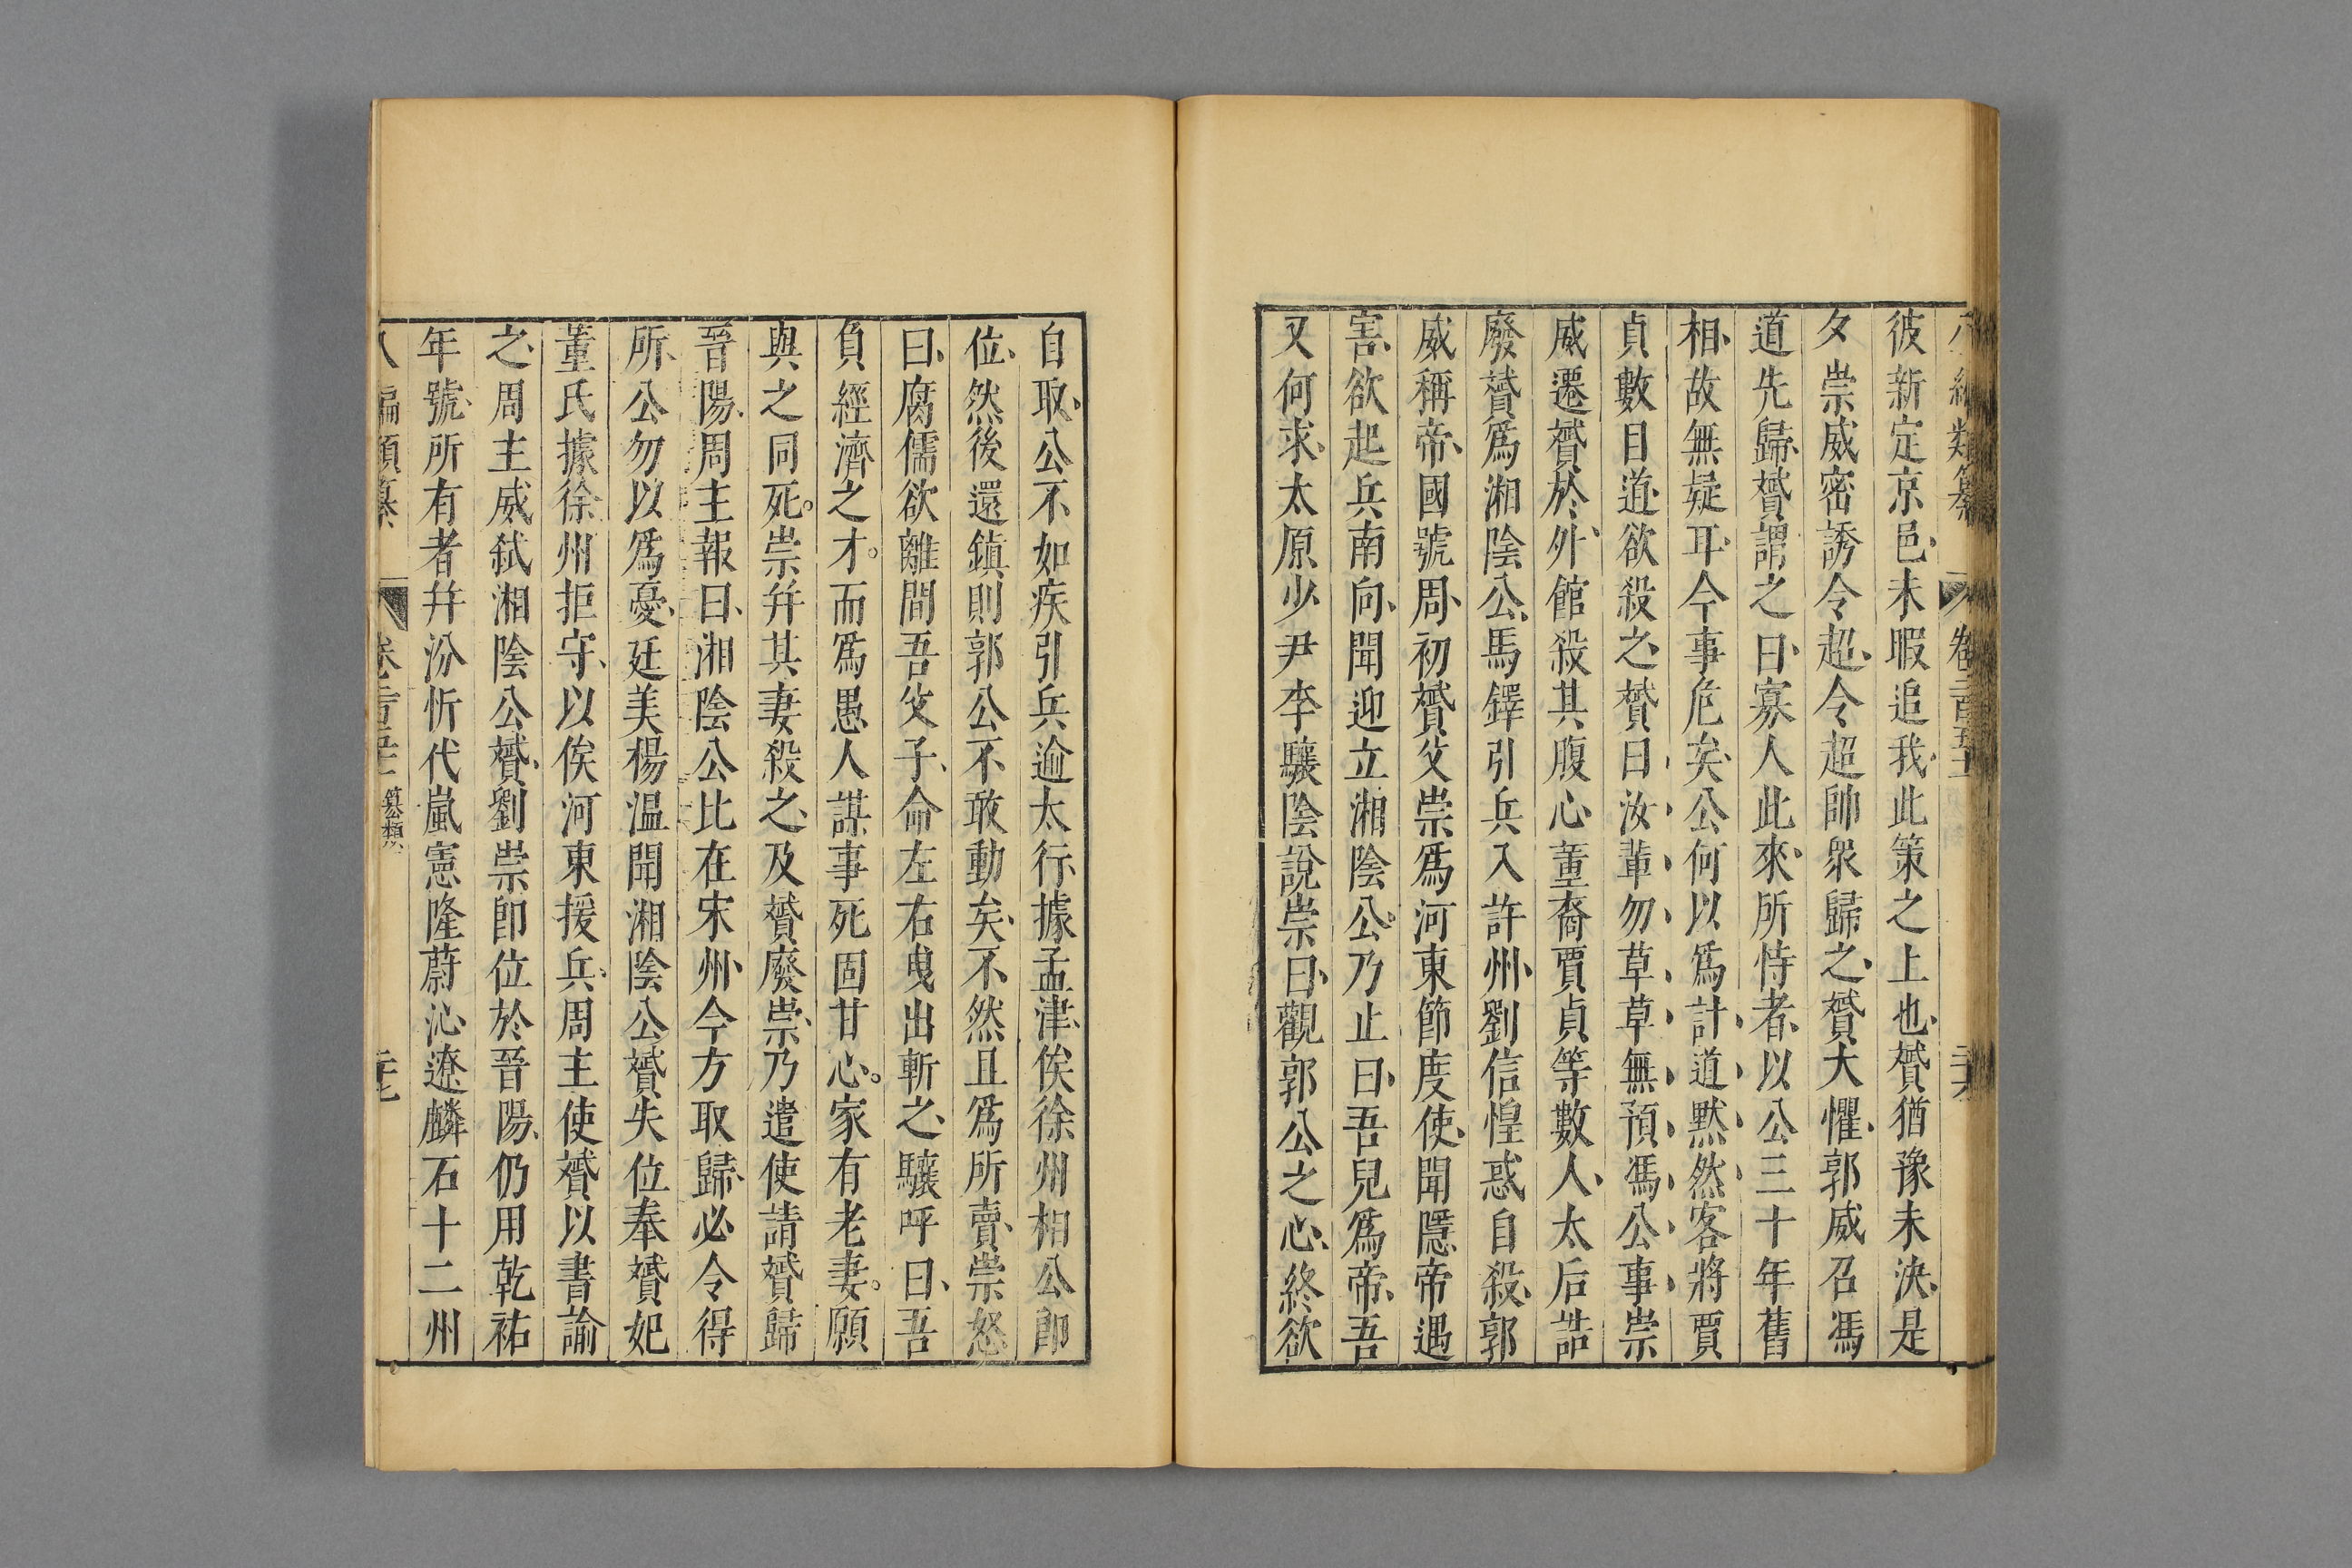 彼新定京邑、未暇追我、此策之上也、贇猶豫未決、是
夕崇威密誘令超、令超帥衆歸之、贇大懼、郭威召馮
道先歸、贇謂之曰、寡人此來、所恃者、以公三十年舊
相、故無疑耳、今事危矣、公何以爲計、道默然、客將賈
貞數目道、欲殺之、贇曰、汝輩、勿、草、草、無、預、馮、公、事、崇
威遷贇於外、館殺其腹心董裔賈貞等數人、太后誥
廢贇爲湘陰公、馬鐸引兵入許州、劉信惶惑自殺、郭
威稱帝、國號周、初贇父崇爲河東節度使、聞隱帝遇
害、欲起兵南向、聞迎立湘陰公、乃止曰、吾兒爲帝、吾
又何求、太原少尹李驤陰說崇曰、觀郭公之心、終欲
自取、公不如疾引兵逾太行、據孟津、俟徐州相公卽
位、然後還鎮則郭公不敢動矣、不然且爲所賣、崇怒
曰、腐儒欲離間吾父子、命左右曳出斬之、驤呼曰、吾
負經濟之才。而爲愚人謀事死固甘心。家有老妻。願
與之同死。崇幷其妻殺之、及贇廢崇、乃遣使請贇歸
晉陽、周主報曰、湘陰公比在宋州、今方取歸、必令得
所、公勿以爲憂、廷美楊溫聞湘陰公贇失位奉贇妃
董氏據徐州拒守、以俟河東援兵、周主使贇以書諭
之、周主威弒湘陰公贇、劉崇卽位於晉陽、仍用乾祐
年號、所有者幷汾忻代嵐憲隆蔚沁遼麟石十二州